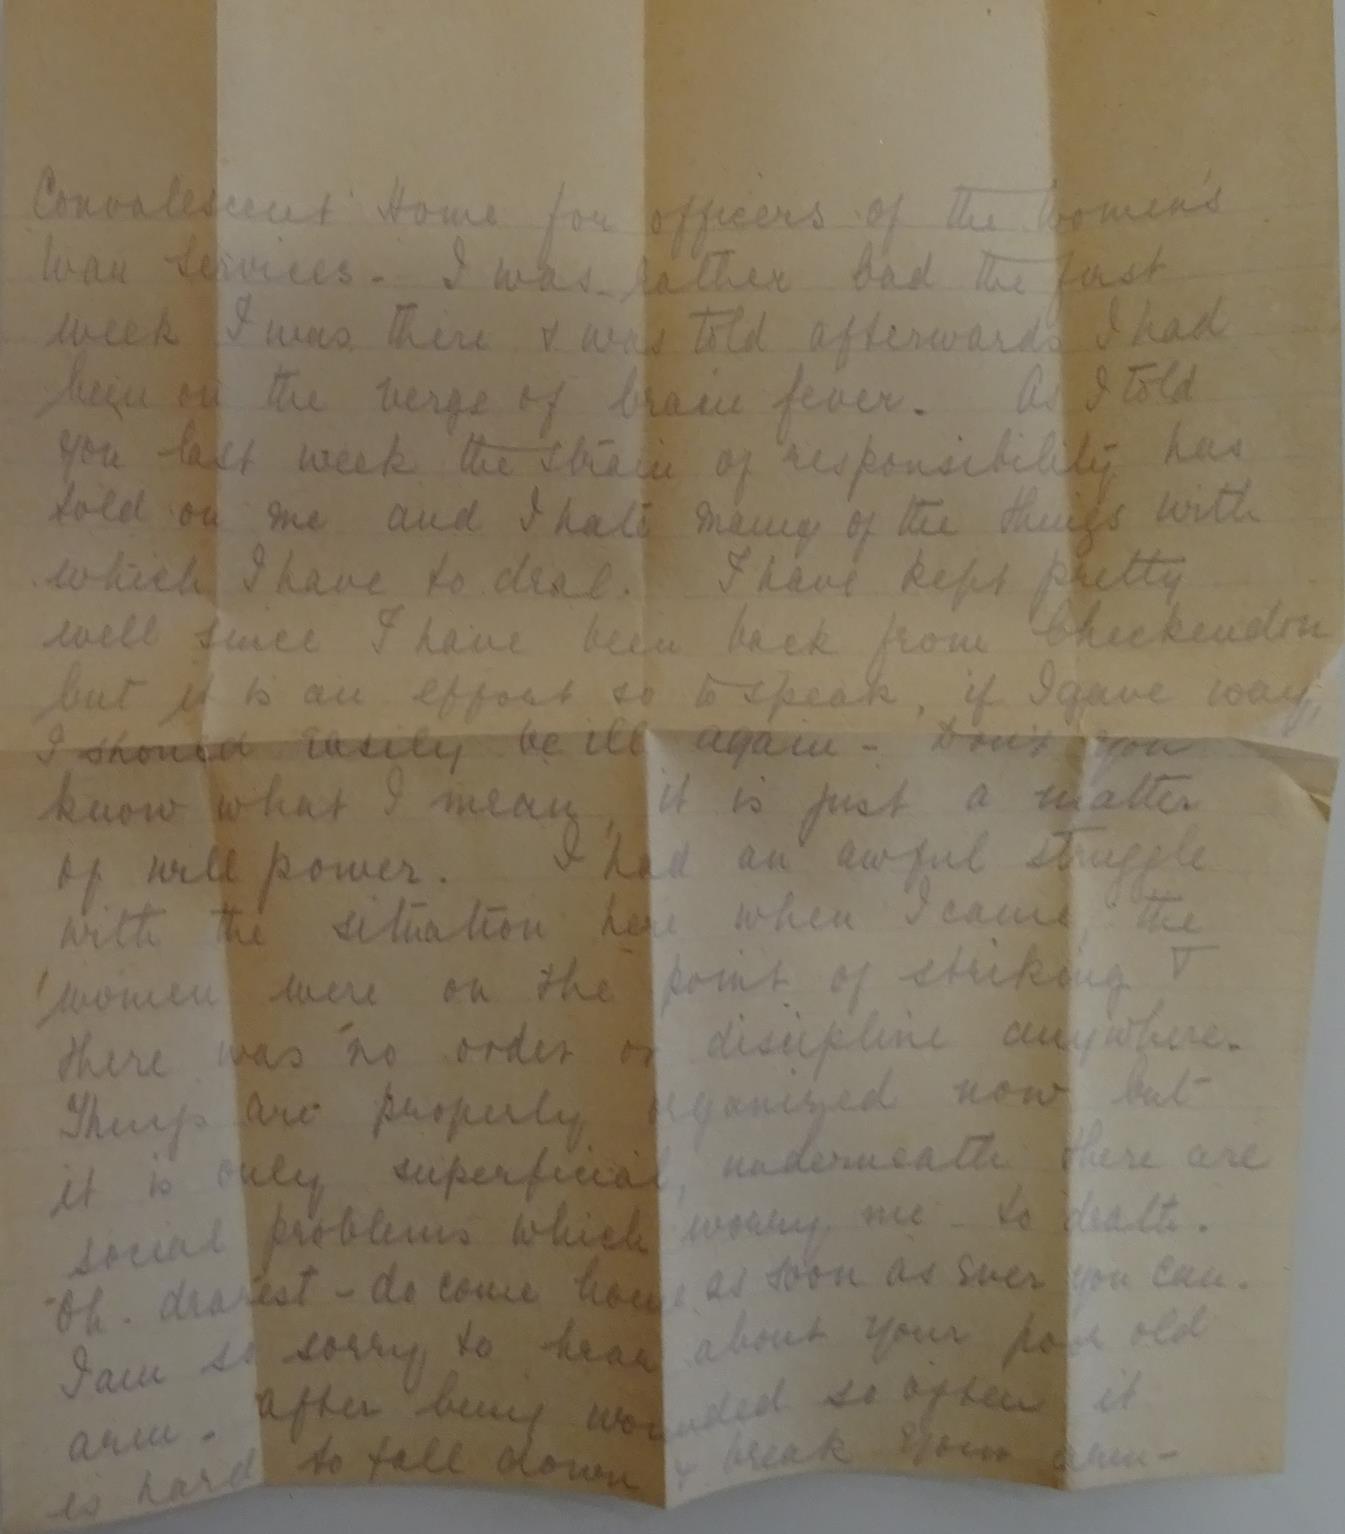 Convalescent Home for officers of the Women's
War Services - I was rather bad the first
week I was there & was told afterwards I had
been on the verge of brain fever. As I told
you last week the strain of responsibility has
told on me and I hate many of the things with
which I have to deal. I have kept pretty
well since I have been back from Checkendon
but it is an effort so to speak, if I gave way,
I should easily be ill again - Don't you
know what I mean, it is just a matter
of will power. I had an awful struggle
with the situation here when I came, the
women were on the point of striking &
there was no order or discipline anywhere.
Things are properly organized now but
it is only superficial, underneath there are
social problems which worry me to death.
Oh. dearest - do come home as soon as ever you can.
I am so sorry to hear about your poor old
arm. After being wounded so often it
is hard to fall down & break your arm -